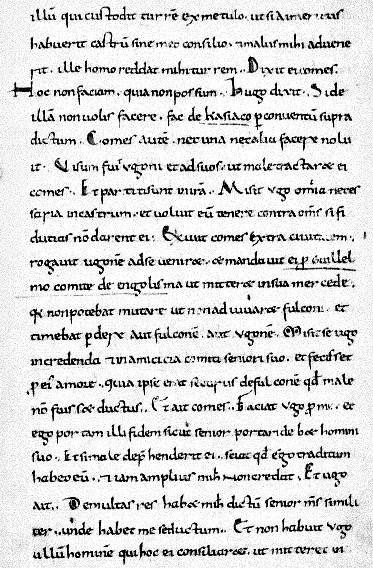 illū qui custodit turrē ex metulo. ut si aimericus
habuerit castrū sine meo consilio. & malus mihi advene
rit. ille homo reddat mihi turrem. Dixit ei comes.
Hoc non faciam. quia non possum. Hugo dixit. Si de
illā non volis facere. fac de kasiaco p conventū supra
dictum. Comes autē. nec una nec aliu facere nolu
it. Visum fuit vgoni et ad suos. ut male tractarae ei
comes. Et partiti sunt in irā. Misit vgo omīa neces
saria in castrum. et voluit eū tenere contra omīs si fi
ducias nō darent ei. Exivit comes extra civitatem.
rogavit ugonē ad se venirae. & mandavit ei p Guillel
mo comite de engolisma ut mitterae in sua mercede.
qa non potebat mutare ut non adiuvarae fulconi. et
timebat pdere aut fulconē. aut vgonē. Misit se vgo
in credencia & in amicicia comiti seniori suo. et fecisset
p ei amore. quia ipse erat securus de fulconē qd male
nō fuissae ductus. Et ait comes. Faciat vgo p me. et
ego portam illi fidem sicut senior portar debae homini
suo. Et si male dephenderit ei. sciat qd ego traditum
habeo eū. & iam amplius mih non credat. Et ugo
ait. De multas res habes mih dictū senior ms simili
ter. unde habet me seductum. Et non habuit vgo
ullū hominē qui hoc ei consiliarae. ut mitteret in